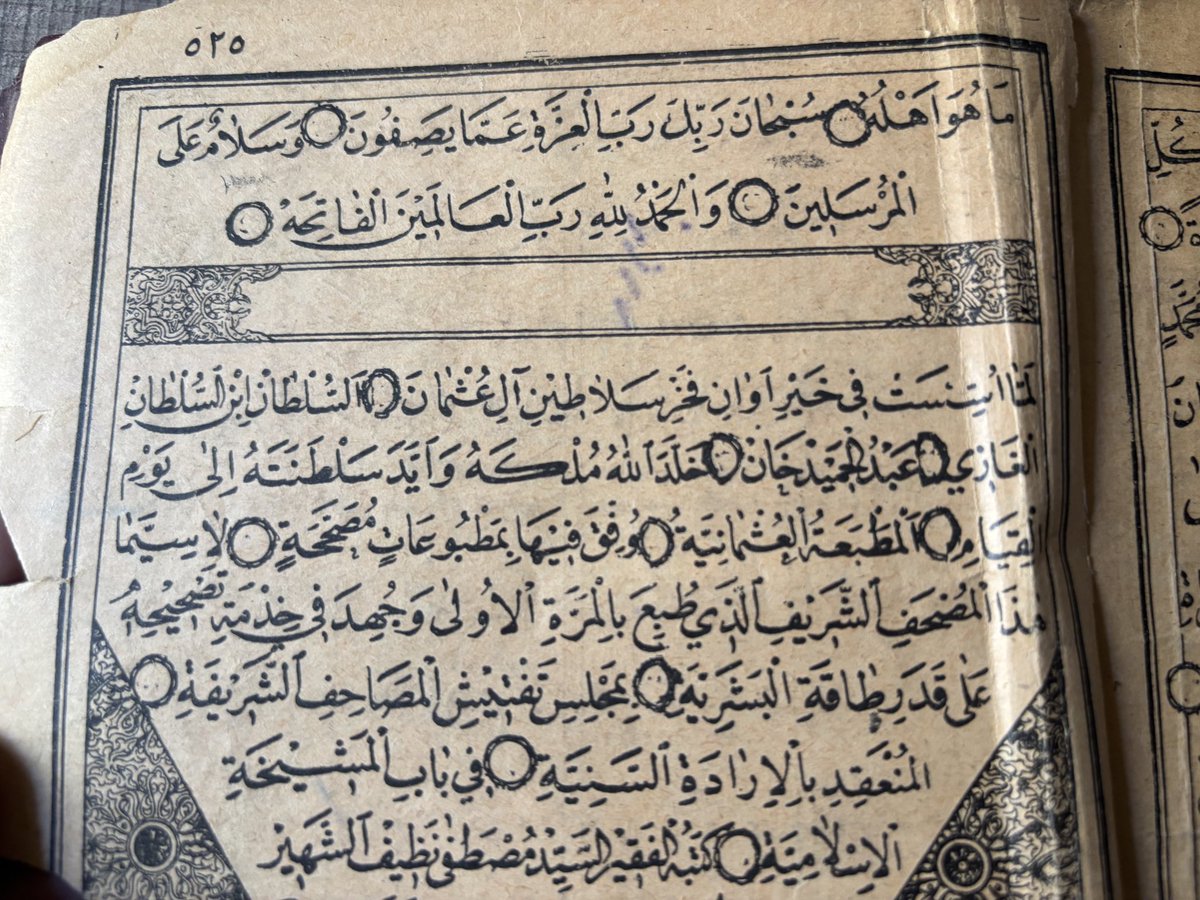 ٥٢٥
مَا هُوَ اَهْلُهُ سُبْحَانَ رَبِّكَ رَبِّ الْعِزَّةِ عَمَّا يَصِفُونَ وَسَلَامٌ عَلَى
الْمُرْسَلِينَ وَالْحَمْدُ لِلّٰهِ رَبِّ الْعَالَمِينَ الْفَاتِحَهْ
لَمَّا اُسِّسَتْ فِى خَيْرِ اَوَانِ فَخْرِ سَلَاطِينِ آلِ عُثْمَانَ اَلسُّلْطَانْ اِبْنِ السُّلْطَانْ
الْغَازِي عَبْدُ الْحَمِيدْ خَانْ خَلَّدَ اللّٰهُ مُلْكَهُ وَاَيَّدَ سَلْطَنَتَهُ اِلٰى يَوْمِ
الْقِيَامِ اَلْمَطْبَعَةُ الْعُثْمَانِيَّةُ وُفِّقَ فِيهَا بِمَطْبُوعَاتٍ مُصَحَّحَةٍ لَاسِيَّمَا
هٰذَا الْمُصْحَفِ الشَّرِيفِ الَّذِي طُبِعَ بِالْمَرَّةِ الْاُولٰى وَجُهِدَ فِي خِدْمَةِ تَصْحِيحِهِ
عَلٰى قَدَرِ طَاقَةِ الْبَشَرِيَّةِ بِمَجْلِسِ تَفْتِيشِ الْمَصَاحِفِ الشَّرِيفَةِ
الْمُنْعَقِدِ بِالْاِرَادَةِ السَّنِيَّةِ فِي بَابِ الْمَشِيخَةِ
الْاِسْلَامِيَّةِ كَتَبَهُ الْفَقِيرُ السَّيِّدْ مُصْطَفٰى نَظِيفْ اَلشَّهِيرْ